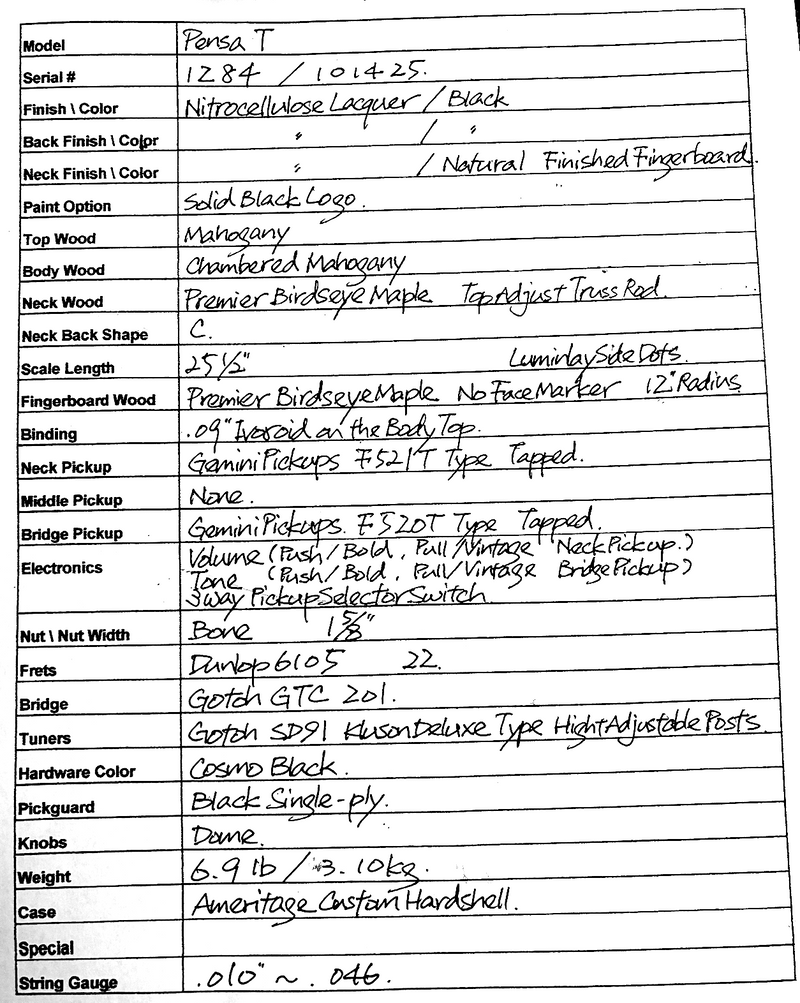 Model Pensa T
Serial # 1284 / 101425.
Finish \ Color Nitrocellulose Lacquer / Black
Back Finish \ Color 〃 / 〃
Neck Finish \ Color 〃 / Natural Finished Fingerboard.
Paint Option Solid Black Logo.
Top Wood Mahogany
Body Wood Chambered Mahogany
Neck Wood Premier Birdseye Maple Top Adjust Truss Rod.
Neck Back Shape C.
Scale Length 25 1/2" Luminlay Side Dots.
Fingerboard Wood Premier Birdseye Maple No Face Marker 12" Radius
Binding .09" Ivoroid on the Body Top.
Neck Pickup Gemini Pickups F521T Type Tapped.
Middle Pickup None.
Bridge Pickup Gemini Pickups. F520T Type Tapped.
Electronics Volume (Push/Bold, Pull/Vintage Neck Pickup.)
Tone (Push/Bold, Pull/Vintage Bridge Pickup)
3way Pickup Selector Switch
Nut \ Nut Width Bone 1 5/8"
Frets Dunlop 6105 22.
Bridge Gotoh GTC 201.
Tuners Gotoh SD91 Kluson Deluxe Type Hight Adjustable Posts.
Hardware Color Cosmo Black.
Pickguard Black Single-ply.
Knobs Dome.
Weight 6.9 lb / 3.10kg.
Case Ameritage Custom Hardshell.
Special
String Gauge .010" ~ .046.